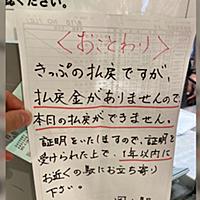 認ください。
＜おことわり＞
きっぷの払戻ですが、
払戻金がありませんので
本日の払戻ができません。
証明をいたしますので、証明を
受けられた上で、1年以内に
お近くの駅にお立ち寄り
下さい。